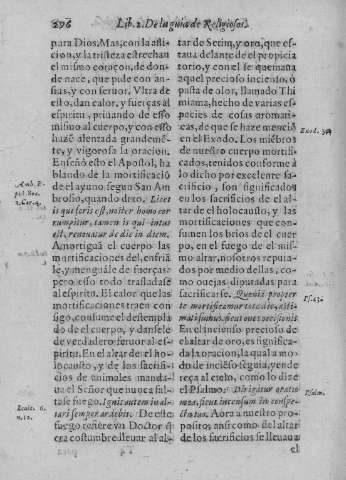 296 Lib. 2. De la guia de Religiosos.
para Dios. Mas, con la afli-
cion, y la tristeza estrechan
el mismo coraçon, de don-
de nace, que pide con an-
sias, y con feruor. Vltra de
esto, dan calor, y fuerças al
espiritu, priuando de esso
mismo al cuerpo, y con esso
hazẽ alentada grandemẽ-
te, y vigorosa la oracion.
Enseñò esto el Apostol, ha
blando de la mortificació
de el ayuno, segun San Am
brosio, quando dixo: Licet
is qui foris est, noster homo cor
rumpitur, tamen is qui intus
est, renouatur de die in diem.
Amortiguã el cuerpo las
mortificaciones del, enfriã
le, y menguãle de fuerças:
pero esso todo trasladase
al espiritu. El calor que las
mortificaciones traen con-
sigo, consume el destempla
do de el cuerpo, y dansele
de verdadero feruor al es-
piritu. En el altar de el ho-
locausto, y de los sacrifi-
cios de animales manda-
ua el Señor que nunca fal-
tase fuego. Ignis autem in al-
tari semper ardebit. De este
fuego refiere vn Doctor q̃
era costumbre lleuar al al-
Amb. E-
pist.
2. Cor. 4.
Leuit. 6.
n. 12.
tar de Setin, y oro, que es-
taua delante de el propicia
torio, y con el se quemaua
aquel precioso incienso, o
pasta de olor, llamado Thi
miama, hecho de varias es-
pecies de cosas aromati-
cas, de que se haze menciõ
en el Exodo. Los miẽbros
de nuestro cuerpo mortifi-
cados, tenidos conforme à
lo dicho por excelente sa-
crificio, son significados
en los sacrificios de el al-
tar de el holocausto, y las
mortificaciones que con-
sumen lo que es de cuerpo,
en el fuego de el mis-
mo altar, nosotros reputa-
dos por medio dellas, co-
mo ouejas diputadas para
sacrificarse. Quoniã propter
te mortificamur tota die, æsti-
mati sumus, sicut oues occisionis
En el incienso precioso de
el altar de oro, es significa-
da la oracion, la qual a mo-
do de incieso seguia, y ende
reça al cielo, como lo dize
el Psalmo. Dirigatur oratio
mea, sicut incensum in conspe-
ctu tuo. Aora a nuestro pro-
posito, ansi como del altar
de los sacrificios se lleuaua
el
Exod. 30.
Ps. 43.
Psalm.